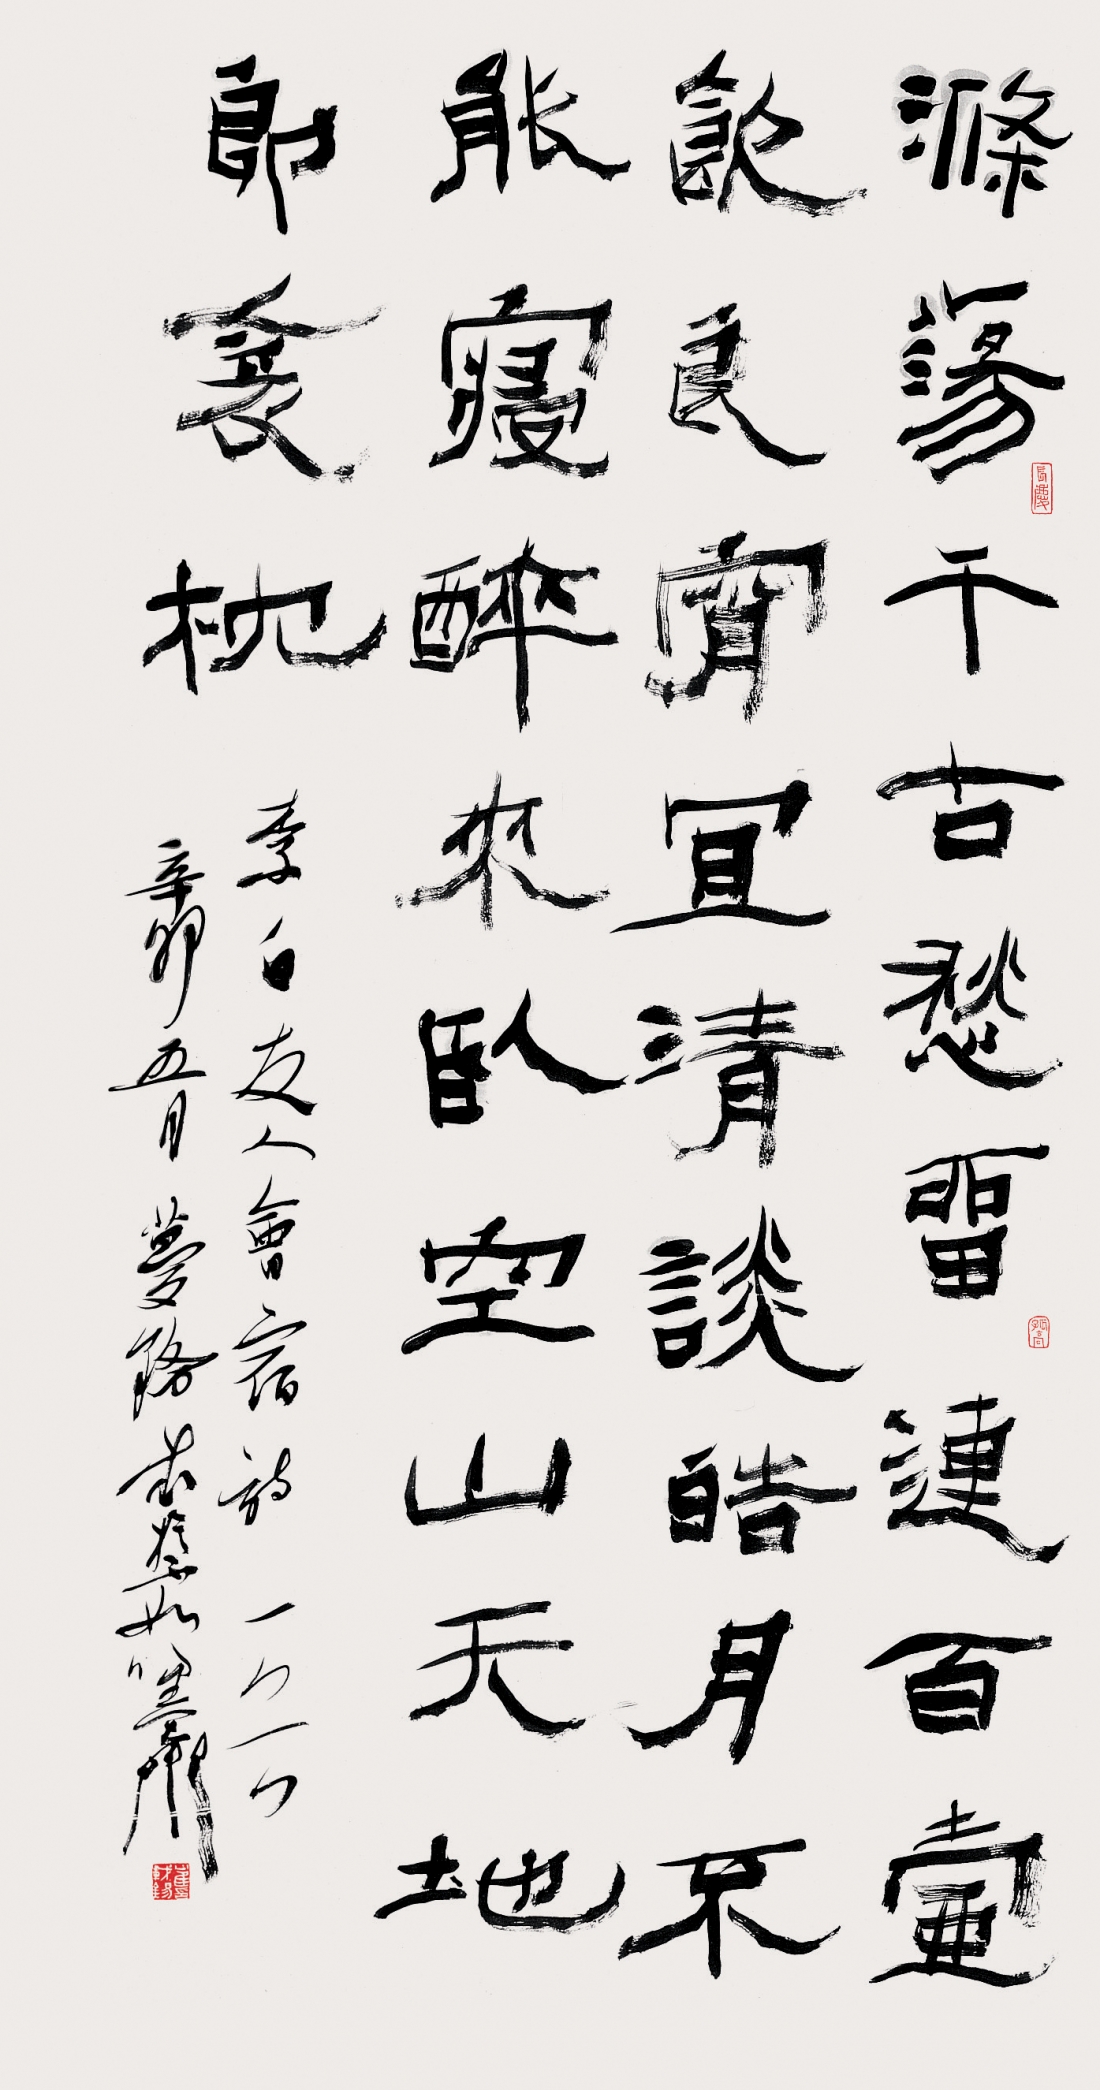 滌蕩千古愁留連百壺
飲良宵宜清談皓月不
能寢醉來臥空山天地
即衾枕
李白友人會宿詩
辛卯五月